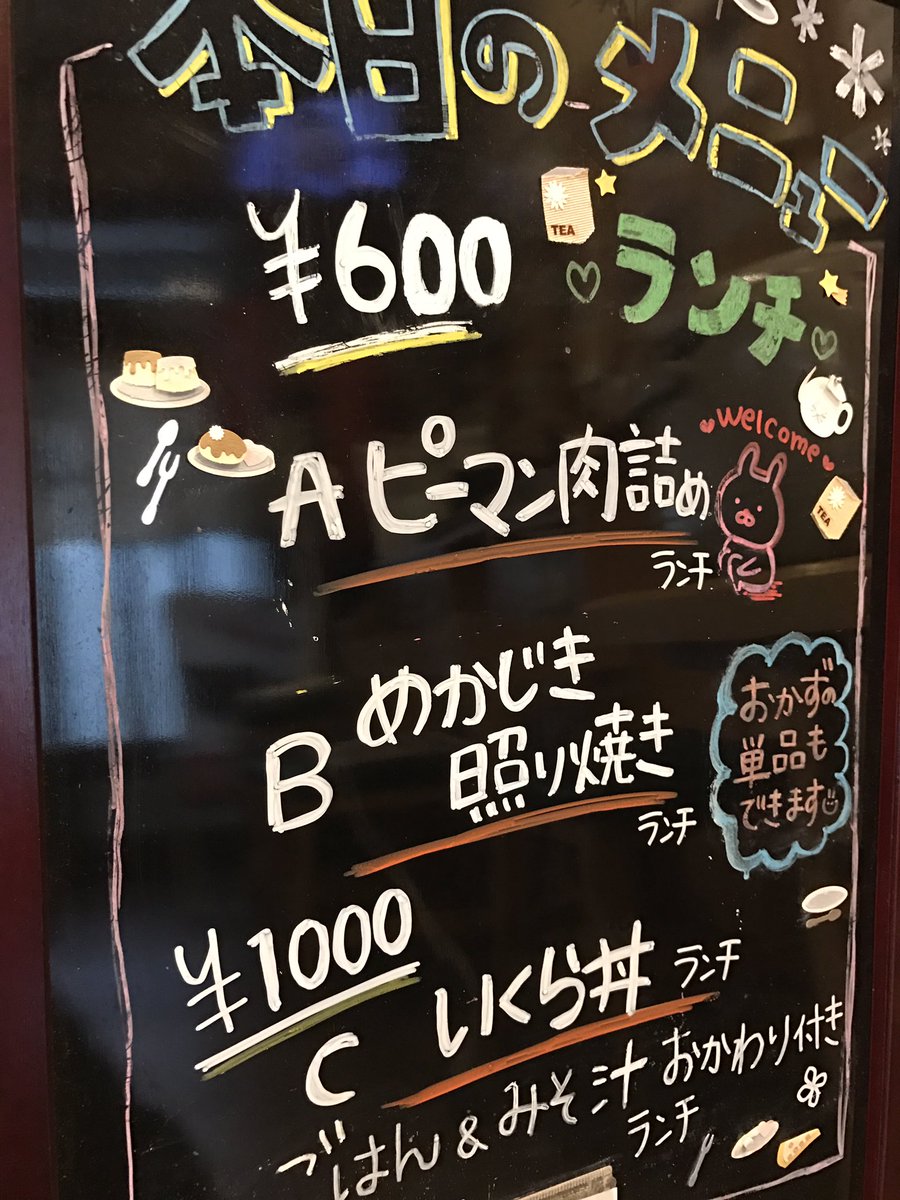 本日のメニュー
¥600
TEA
ランチ
welcome
A ピーマン肉詰め
ランチ
TEA
B めかじき
照り焼き
ランチ
おかずの
単品も
できます
¥1000
C いくら丼
ランチ
ごはん&みそ汁 おかわり付き
ランチ